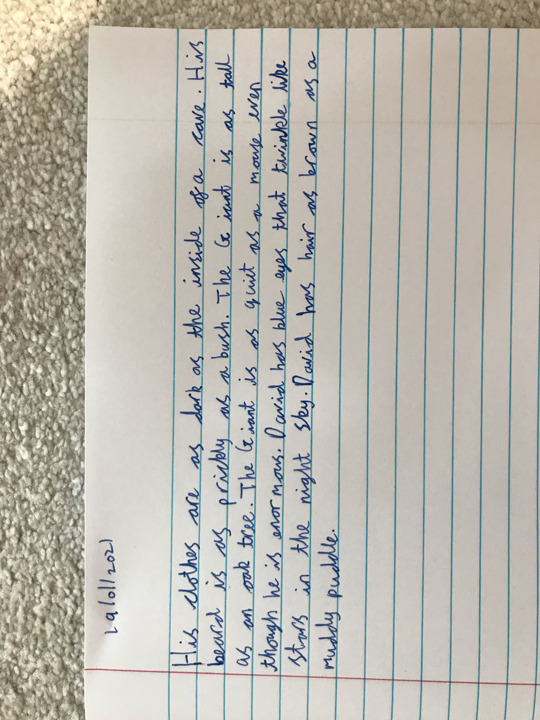 29/01/2021
His clothes are as dark as the inside of a cave. His
beard is as prickly as a bush. The Giant is as tall
as an oak tree. The Giant is as quiet as a mouse even
though he is enormous. David has blue eyes that twinkle like
stars in the night sky. David has hair as brown as a
muddy puddle.